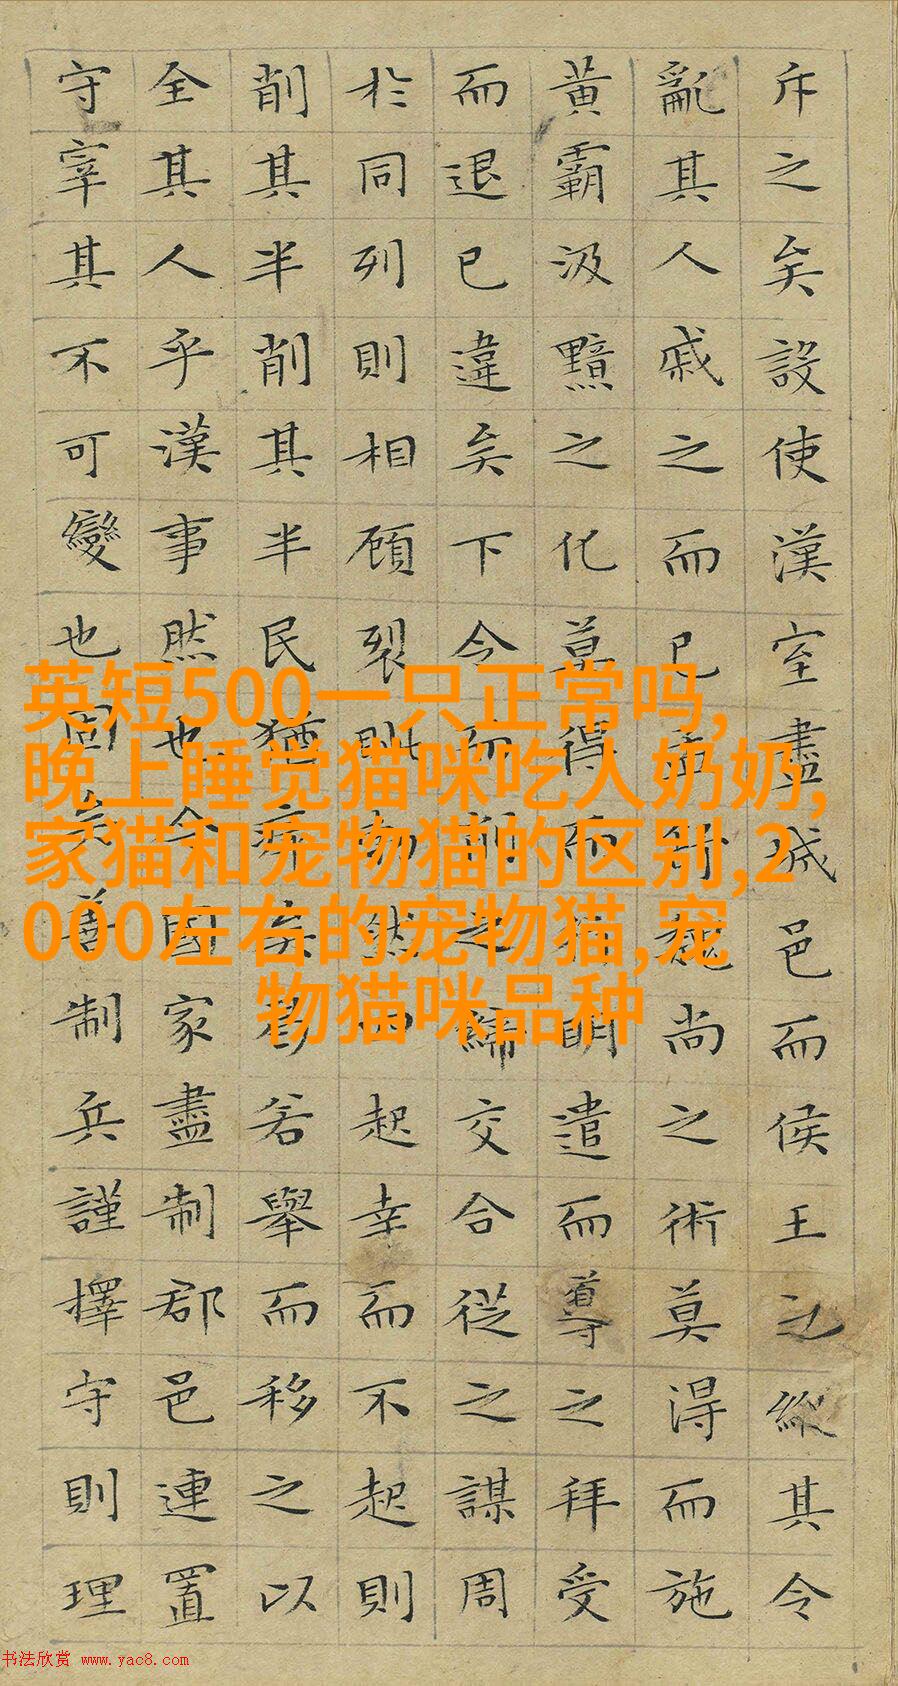 斥之矣設使漢室盡城邑而侯王之縱其令
亂其人戚之而已孟舒魏尚之術莫得而施
黃霸汲黯之化莫得而行明遣而導之拜受
而退已違矣下令而削之締交合從之謀周
於同列則相顧裂眦勃然而起幸而不起則
削其半削其半民猶瘁矣曷若舉而移之以
全其人乎漢事然也今國家盡制郡邑連置
守宰其不可變也固矣善制兵謹擇守則理
英短500一只正常吗,
晚上睡觉猫咪吃人奶奶,
家猫和宠物猫的区别,2
000左右的宠物猫,宠
物猫咪品种
书法欣赏 www.yac8.com